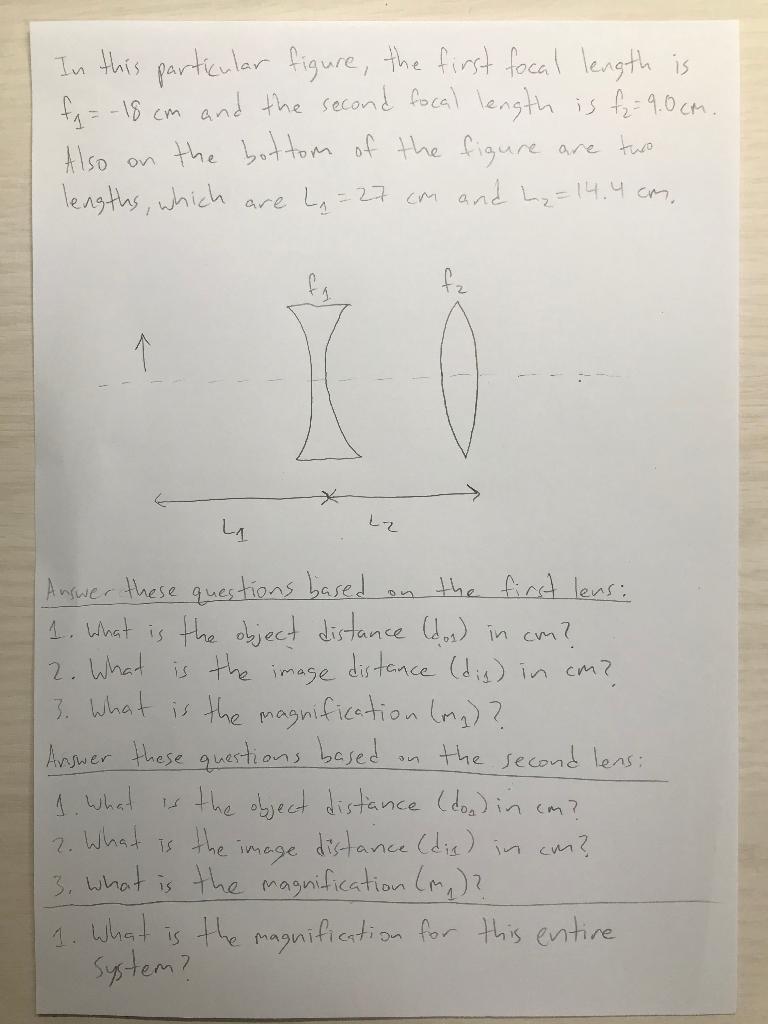 In this particular figure, the first focal length is
f₁ = -18 cm and the second focal length is f₂ = 9.0 cm.
Also on the bottom of the figure are two
lengths, which are L₁ = 27 cm and L₂ = 14.4 cm.
f₁ f₂
L₁ L₂
Answer these questions based on the first lens:
1. What is the object distance (do₁) in cm?
2. What is the image distance (di₁) in cm?
3. What is the magnification (m₁)?
Answer these questions based on the second lens:
1. What is the object distance (do₂) in cm?
2. What is the image distance (di₁) in cm?
3. What is the magnification (m₁)?
1. What is the magnification for this entire
system?